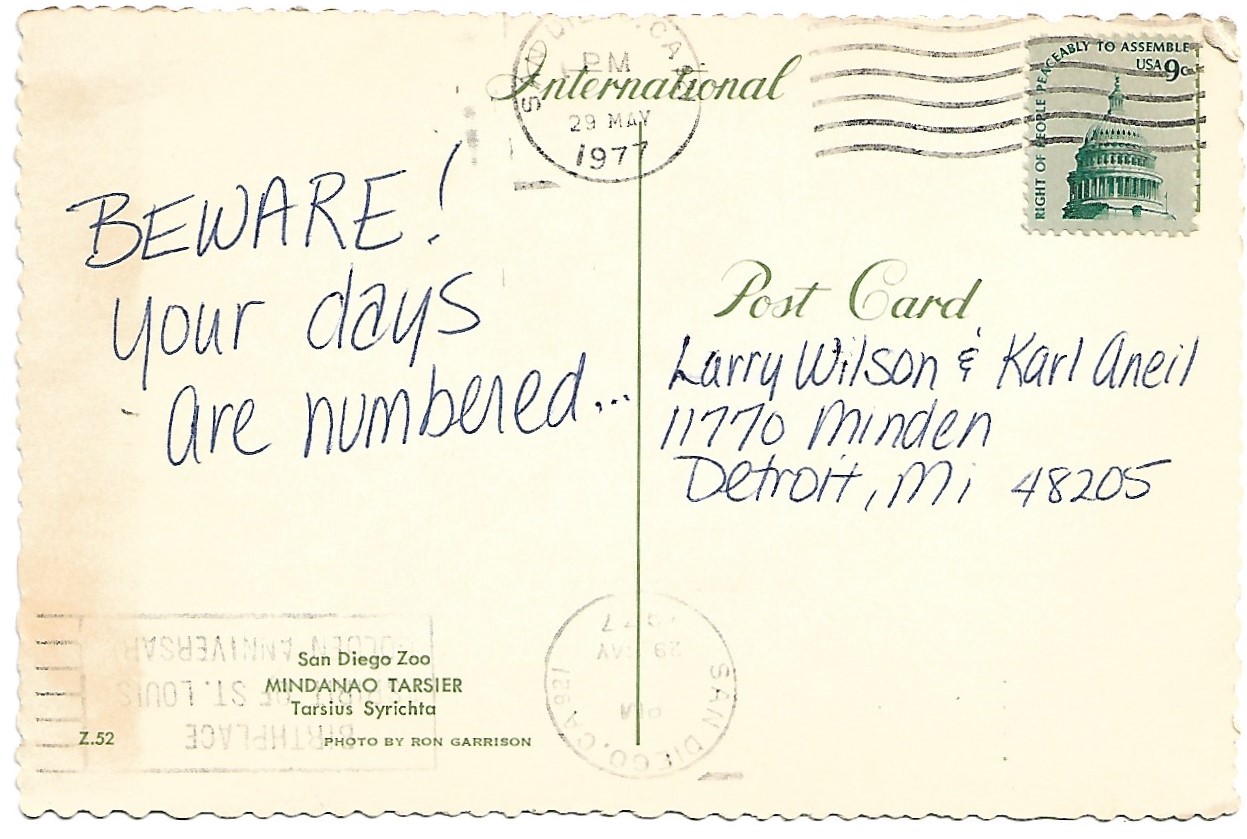 International
Post Card
SAN DIEGO, CA
PM
29 MAY
1977
RIGHT OF PEOPLE PEACEABLY TO ASSEMBLE
USA 9c
BEWARE!
your days
are numbered...
Larry Wilson & Karl Aneil
11770 Minden
Detroit, Mi 48205
San Diego Zoo
MINDANAO TARSIER
Tarsius Syrichta
Z.52
PHOTO BY RON GARRISON
BIRTHPLACE
SPIRIT OF ST. LOUIS
GOLDEN ANNIVERSARY
SAN DIEGO, CA 921
PM
29 MAY
1977